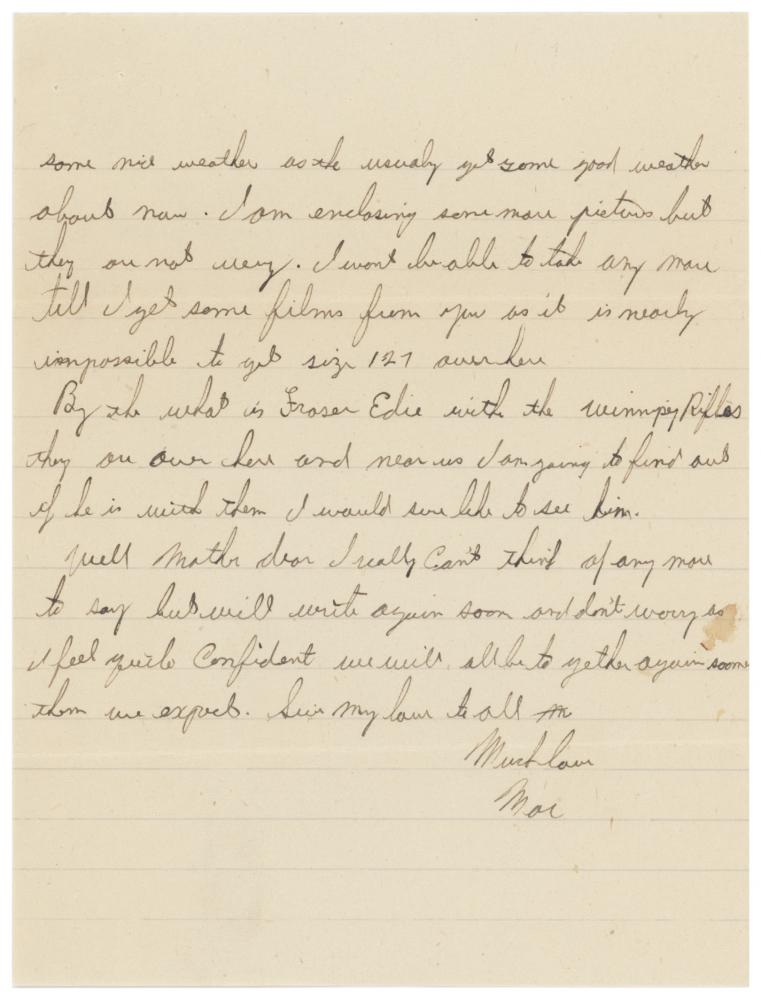 some nice weather as the usualy get some good weather
about now. I am enclosing some more pictures but
they are not very. I wont be able to take any more
till I get some films from you as it is nearly
impossible to get size 127 over here
By the what is Fraser Edie with the Winnipeg Rifles
they are over here and near us I am going to find out
if he is with them I would sure like to see him.
Well Mother dear I really Can't think of any more
to say but will write again soon and don't worry as
I feel quite Confident we will all be to gether again soone
them we expect. Give my love to all
Much love
Mac